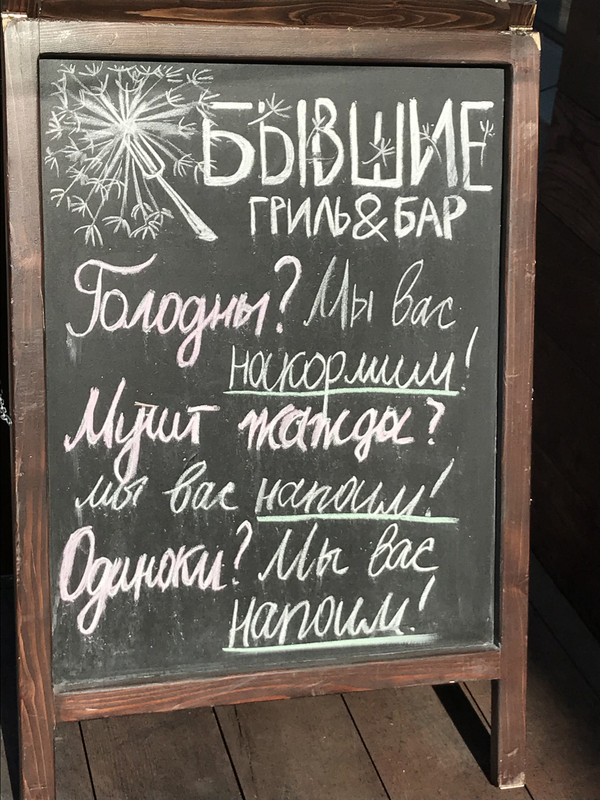 БЫВШИЕ
ГРИЛЬ&БАР
Голодны? Мы вас
накормим!
Мучит жажда?
мы вас напоим!
Одиноки? Мы вас
напоим!